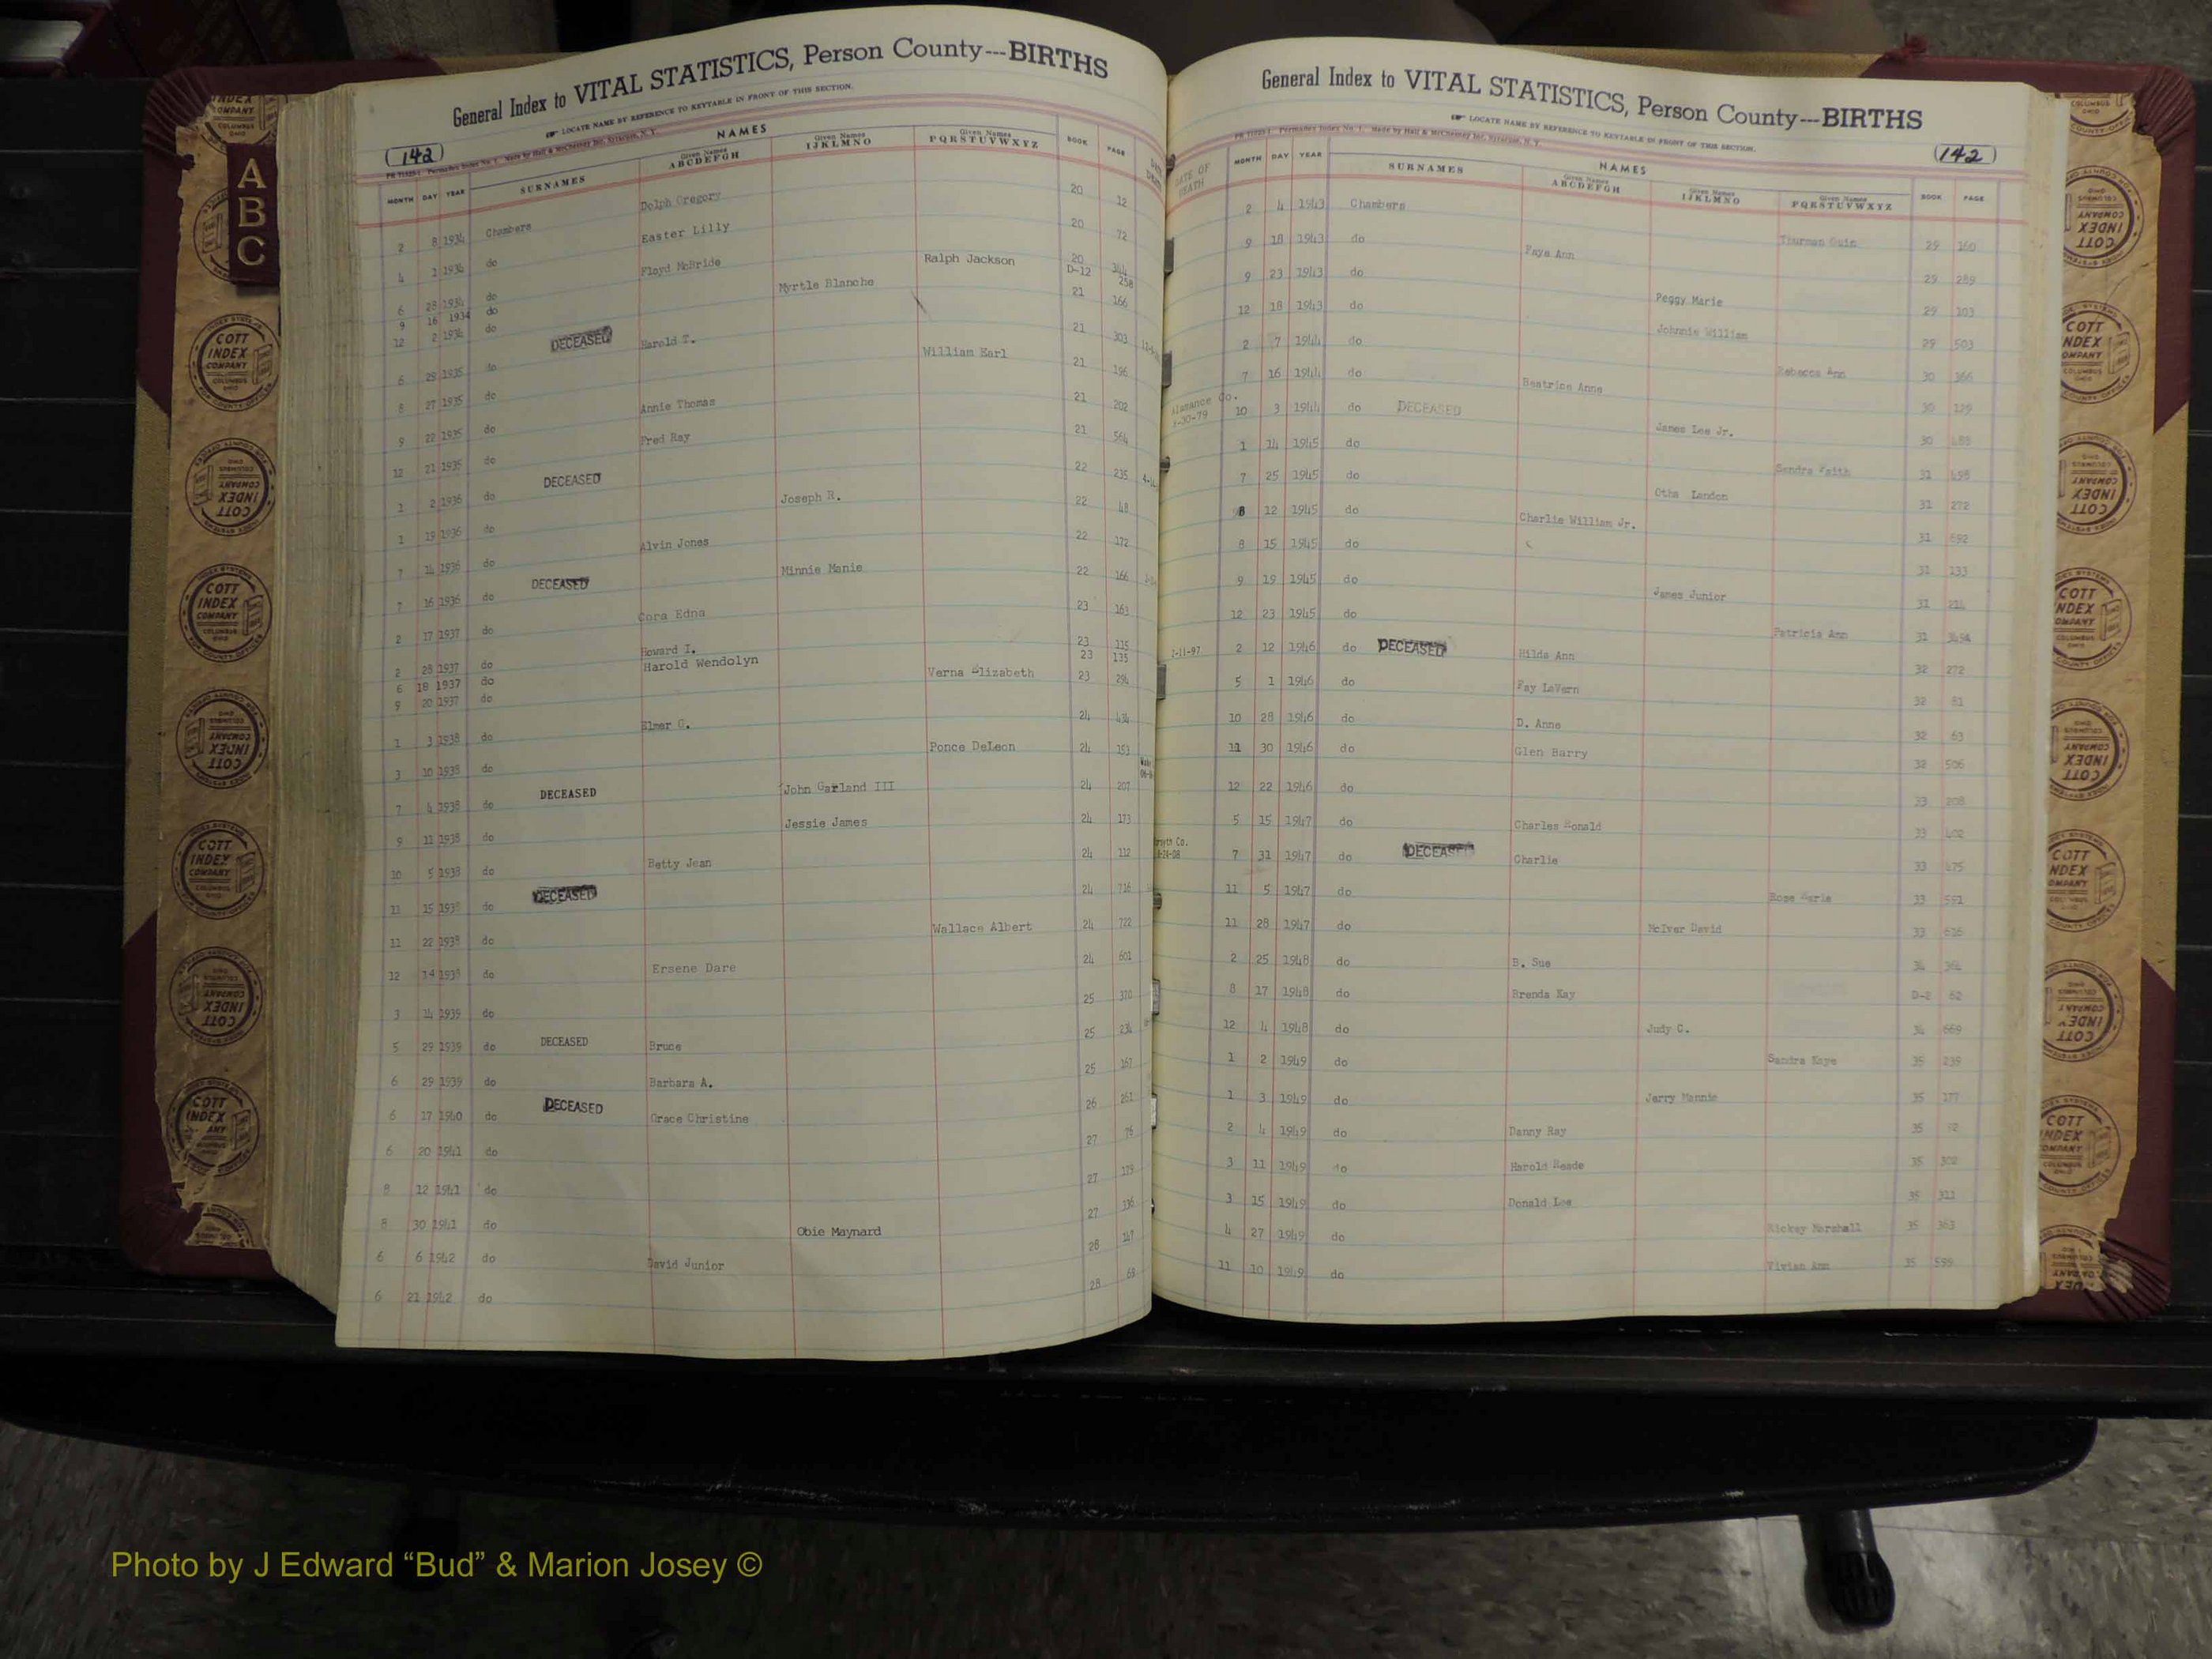 General Index to VITAL STATISTICS, Person County---BIRTHS
LOCATE NAME BY REFERENCE TO KEYTABLE IN FRONT OF THIS SECTION.
142
NAMES
MONTH DAY YEAR SURNAMES Given Names ABCDEFGH Given Names IJKLMNO Given Names PQRSTUVWXYZ BOOK PAGE
2 8 1934 Chambers Dolph Gregory 20 12
4 1 1934 do Easter Lilly 20 72
6 28 1934 do Floyd McBride 20 344
9 16 1934 do Ralph Jackson D-12 258
12 2 1934 do Myrtle Blanche 21 166
6 29 1935 do DECEASED Harold T. 21 303
8 27 1935 do William Earl 21 196
9 22 1935 do Annie Thomas 21 202
12 21 1935 do Fred Ray 21 564
1 2 1936 do DECEASED 22 235
1 19 1936 do Joseph R. 22 48
7 14 1936 do Alvin Jones 22 172
7 16 1936 do DECEASED Minnie Manie 22 166
2 17 1937 do Cora Edna 23 163
2 28 1937 do Howard I. 23 115
6 18 1937 do Harold Wendolyn 23 135
9 20 1937 do Verna Elizabeth 23 294
1 3 1938 do Elmer G. 24 434
3 10 1938 do Ponce DeLeon 24 153
7 4 1938 do DECEASED John Garland III 24 207
9 11 1938 do Jessie James 24 173
10 5 1938 do Betty Jean 24 112
11 15 1938 do DECEASED 24 716
11 22 1938 do Wallace Albert 24 722
12 14 1938 do Ersene Dare 24 601
3 14 1939 do 25 370
5 29 1939 do DECEASED Bruce 25 234
6 29 1939 do Barbara A. 25 167
6 17 1940 do DECEASED Grace Christine 26 261
6 20 1941 do 27 76
8 12 1941 do 27 179
8 30 1941 do Obie Maynard 27 136
6 6 1942 do David Junior 28 147
6 21 1942 do 28 63
General Index to VITAL STATISTICS, Person County---BIRTHS
LOCATE NAME BY REFERENCE TO KEYTABLE IN FRONT OF THIS SECTION.
142
NAMES
DATE OF DEATH MONTH DAY YEAR SURNAMES Given Names ABCDEFGH Given Names IJKLMNO Given Names PQRSTUVWXYZ BOOK PAGE
2 4 1943 Chambers Thurman 29 160
9 18 1943 do Faye Ann 29 289
9 23 1943 do Peggy Marie 29 103
12 18 1943 do Johnnie William 29 503
2 7 1944 do Rebecca Ann 30 366
7 16 1944 do Beatrice Anne 30 129
Alamance Co. 10 3 1944 do DECEASED James Lee Jr. 30 488
1 14 1945 do Sandra Faith 31 498
7 25 1945 do Otha Landon 31 272
8 12 1945 do Charlie William Jr. 31 692
8 15 1945 do 31 133
9 19 1945 do James Junior 31 214
12 23 1945 do Patricia Ann 31
2-11-97 2 12 1946 do DECEASED Hilda Ann 32 272
5 1 1946 do Fay LaVern 32 81
10 28 1946 do D. Anne 32 63
11 30 1946 do Glen Barry 32 506
12 22 1946 do 33 208
5 15 1947 do Charles Ronald 33 402
7 31 1947 do DECEASED Charlie 33 475
11 5 1947 do Rose Marie 33 551
11 28 1947 do McIver David 33 616
2 25 1948 do B. Sue 34 364
8 17 1948 do Brenda Kay D-2 62
12 4 1948 do Judy C. 34 669
1 2 1949 do Sandra Kaye 35 239
1 3 1949 do Jerry Mannie 35 177
2 4 1949 do Danny Ray 35
3 11 1949 do Harold Reade 35 302
3 15 1949 do Donald Lee 35 311
4 27 1949 do Rickey Marshall 35 363
11 10 1949 do Vivian Ann 35 599
A
B
C
COTT INDEX COMPANY COLUMBUS OHIO
Photo by J Edward “Bud” & Marion Josey ©